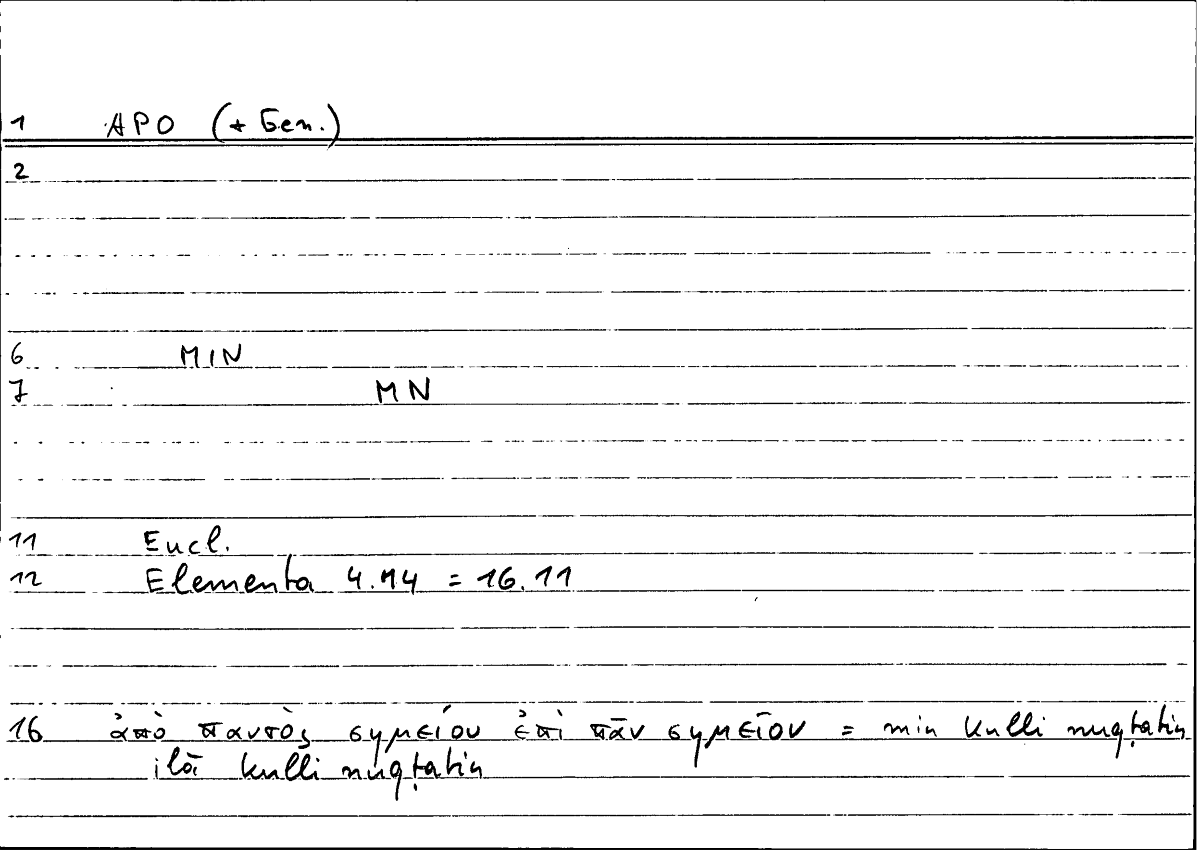 1 APO (+ Gen.)
2
6 MIN
7 MN
11 Eucl.
12 Elementa 4.14 = 16.11
16 ἀπὸ παντὸς σημείου ἐπὶ πᾶν σημεῖον = min kulli nuqṭatin
ilā kulli nuqṭatin